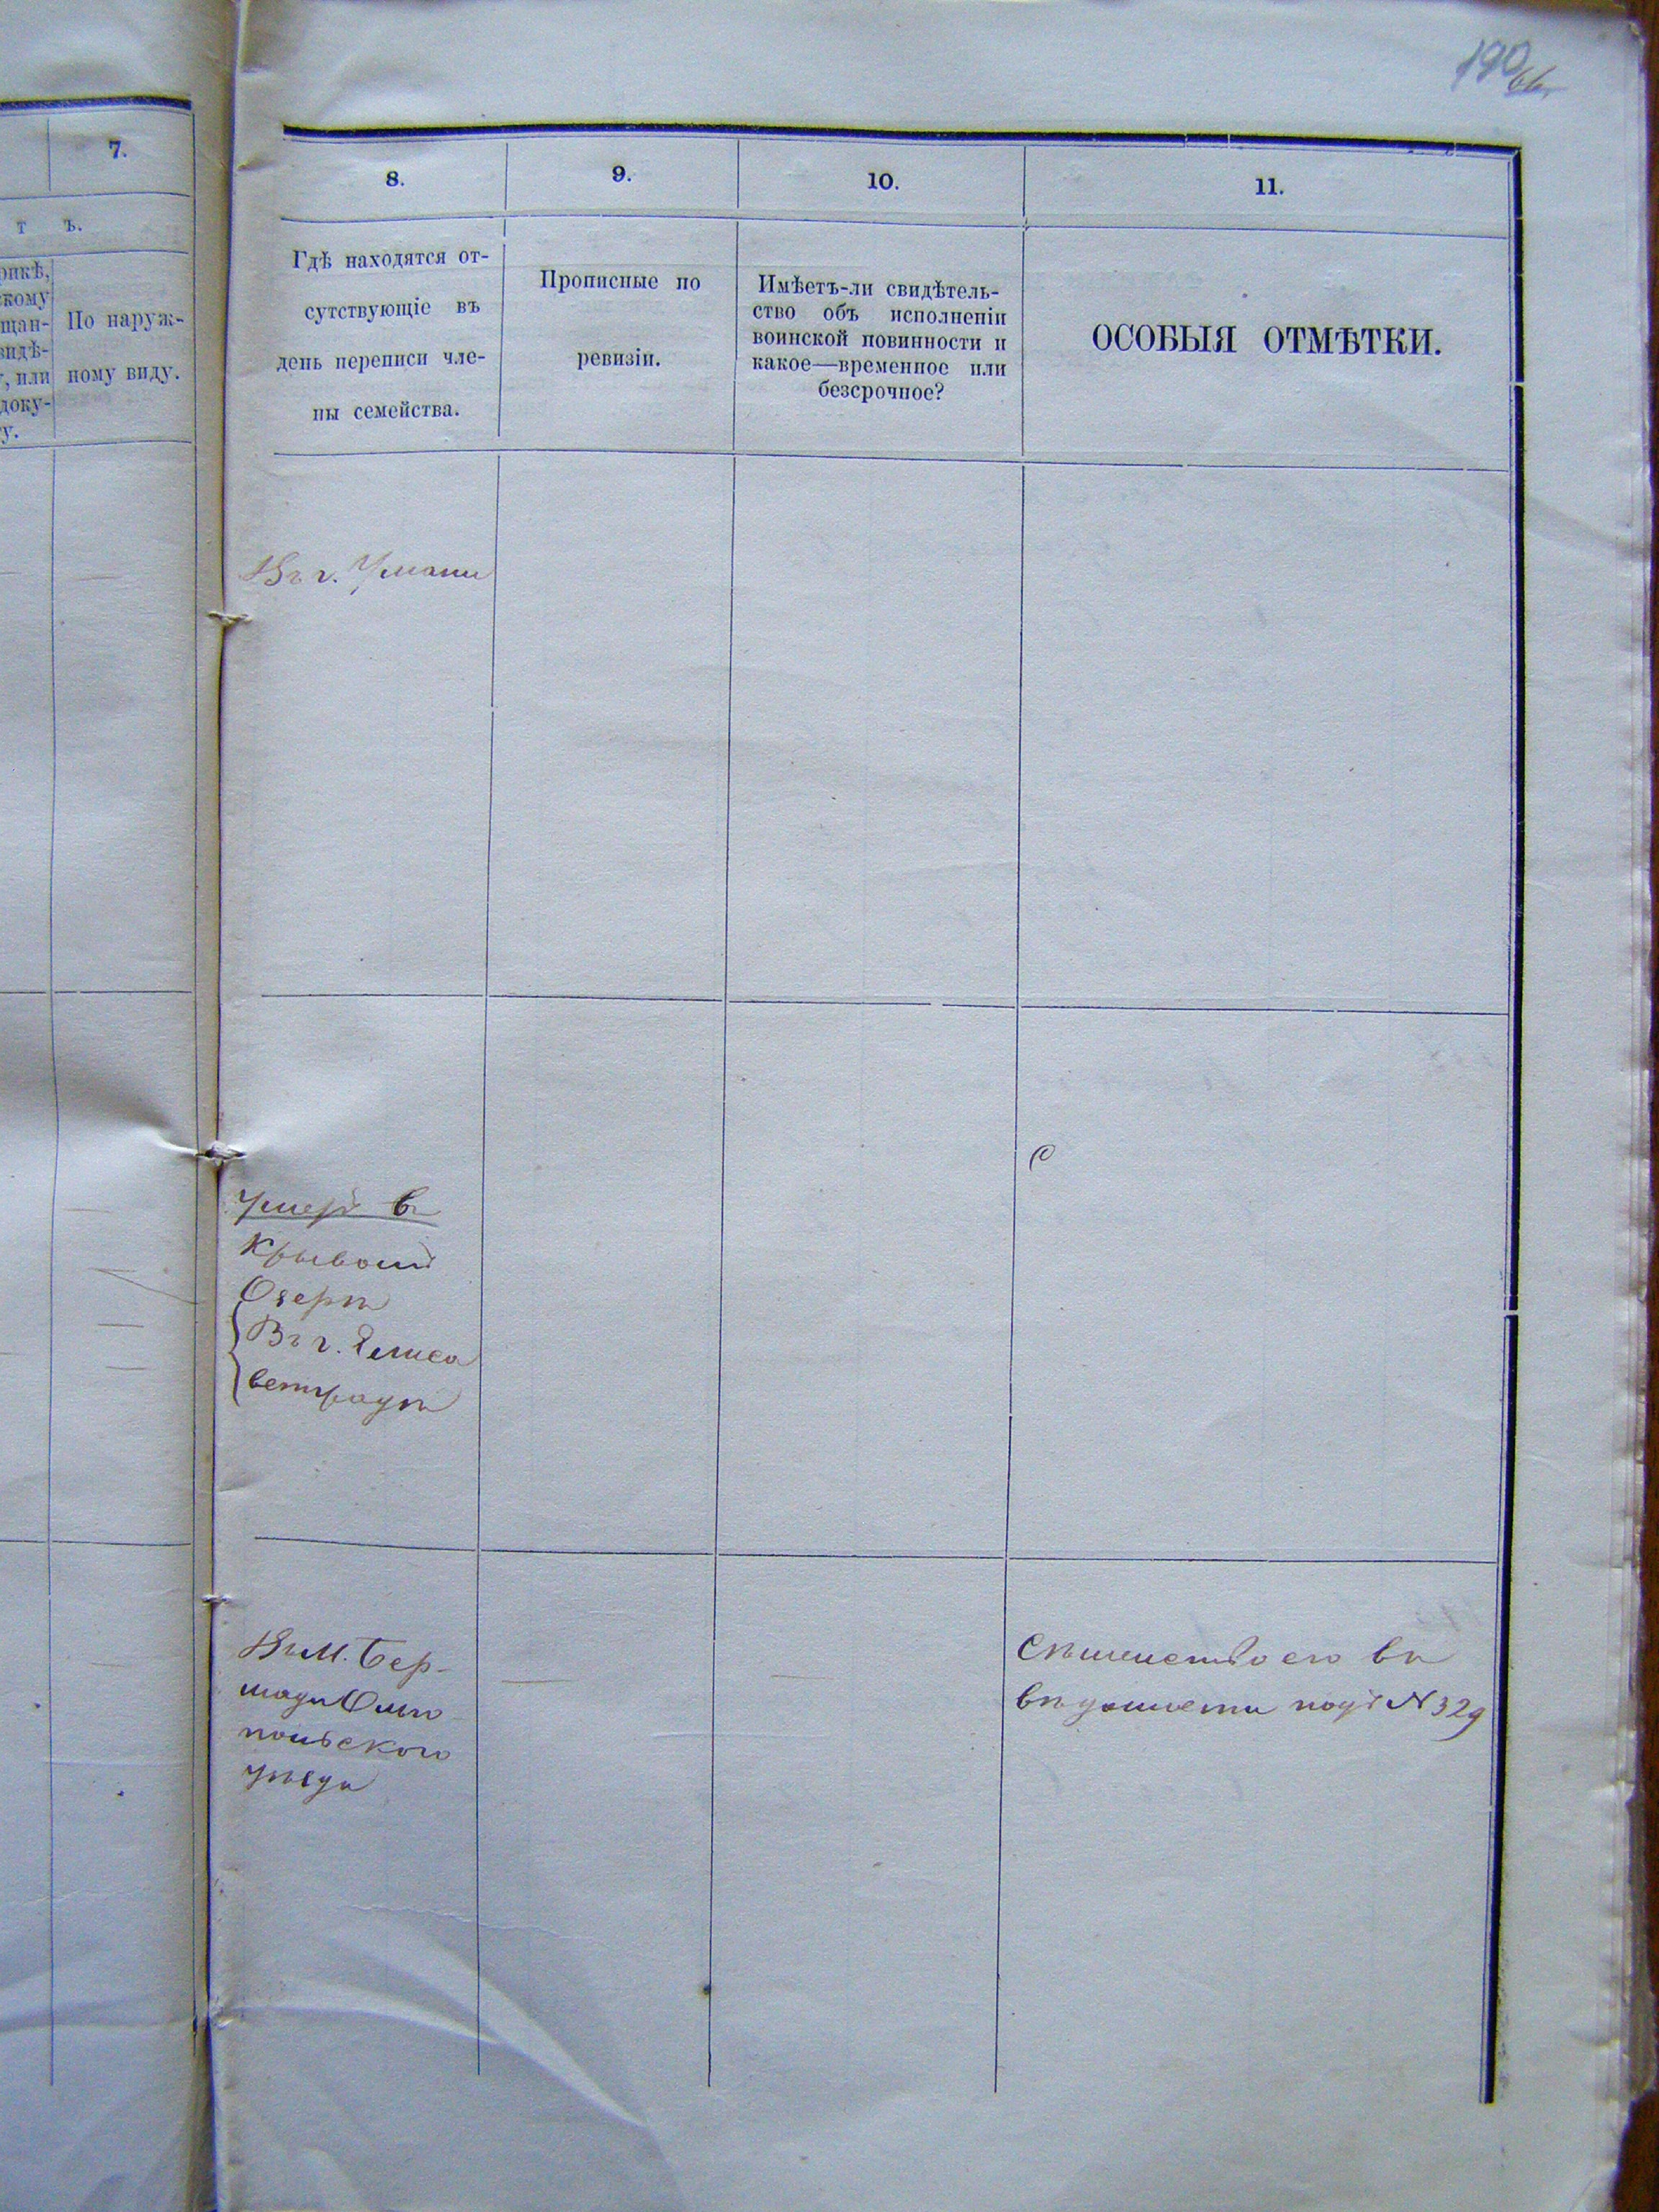 190
7.
т ъ.
По наруж-
ному виду.
8.
9.
10.
11.
Гдѣ находятся от-
сутствующіе въ
день переписи чле-
ны семейства.
Прописные по
ревизіи.
Имѣетъ-ли свидѣтель-
ство объ исполненіи
воинской повинности и
какое—временное или
безсрочное?
ОСОБЫЯ ОТМѢТКИ.
Въ г. Умани
Умеръ въ
Крывомъ
Озерѣ
Въ г. Елиса
ветградѣ
Въ м. Бер-
шади Ольго
польского
уѣзда
Сѣмейство его въ
вѣдомости подъ N 329